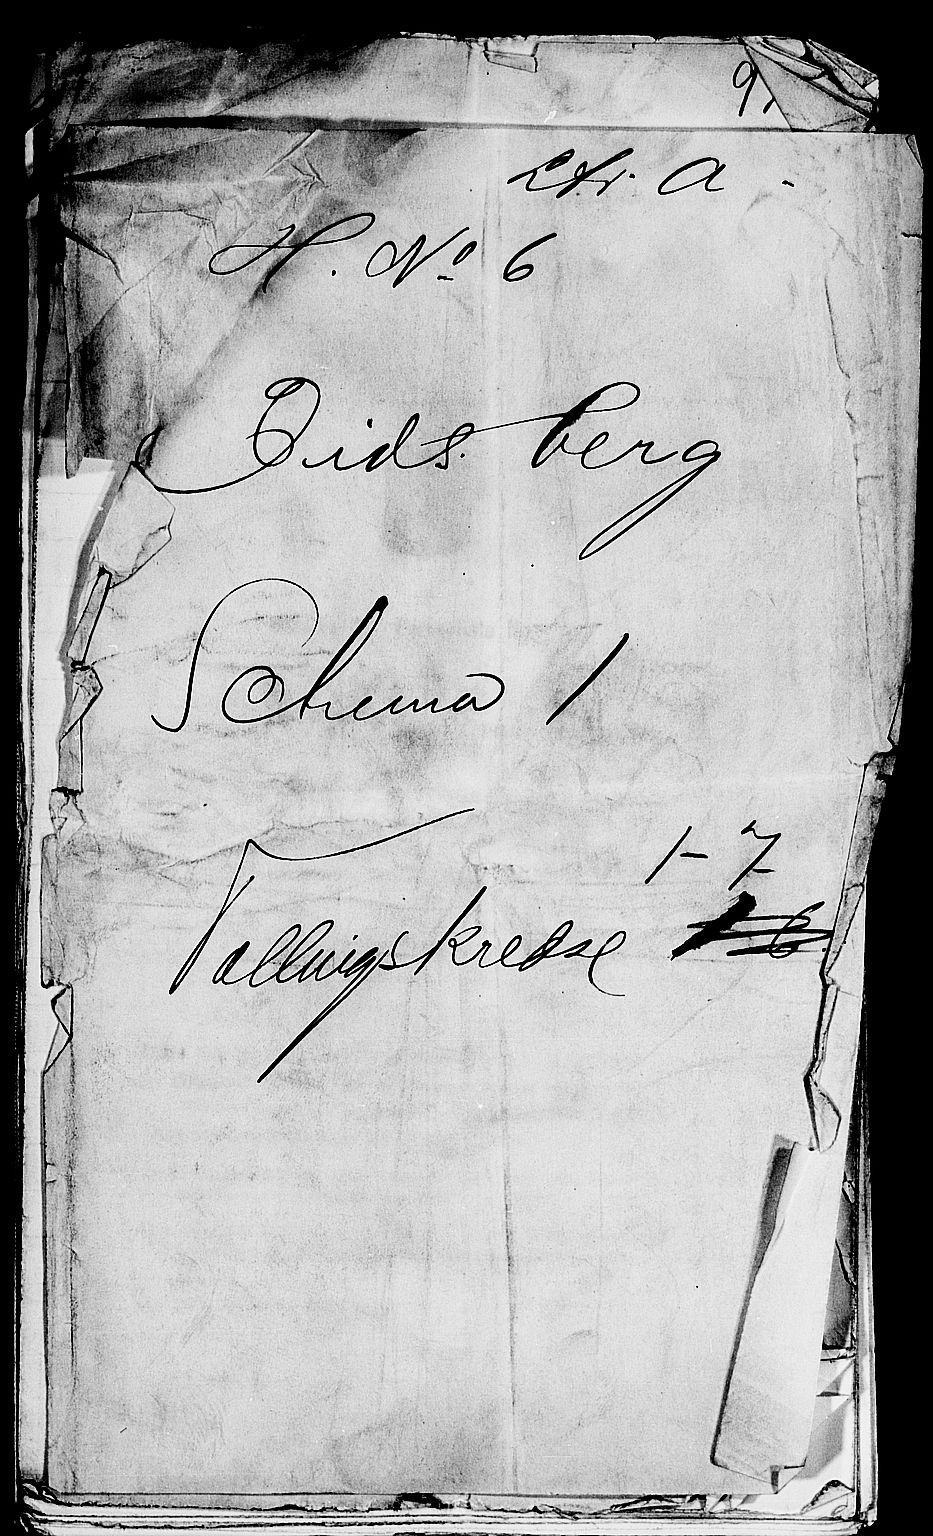 9
Ltr. A -
H. No 6
Eidsberg
Schema 1
1-7
Tællingskredse